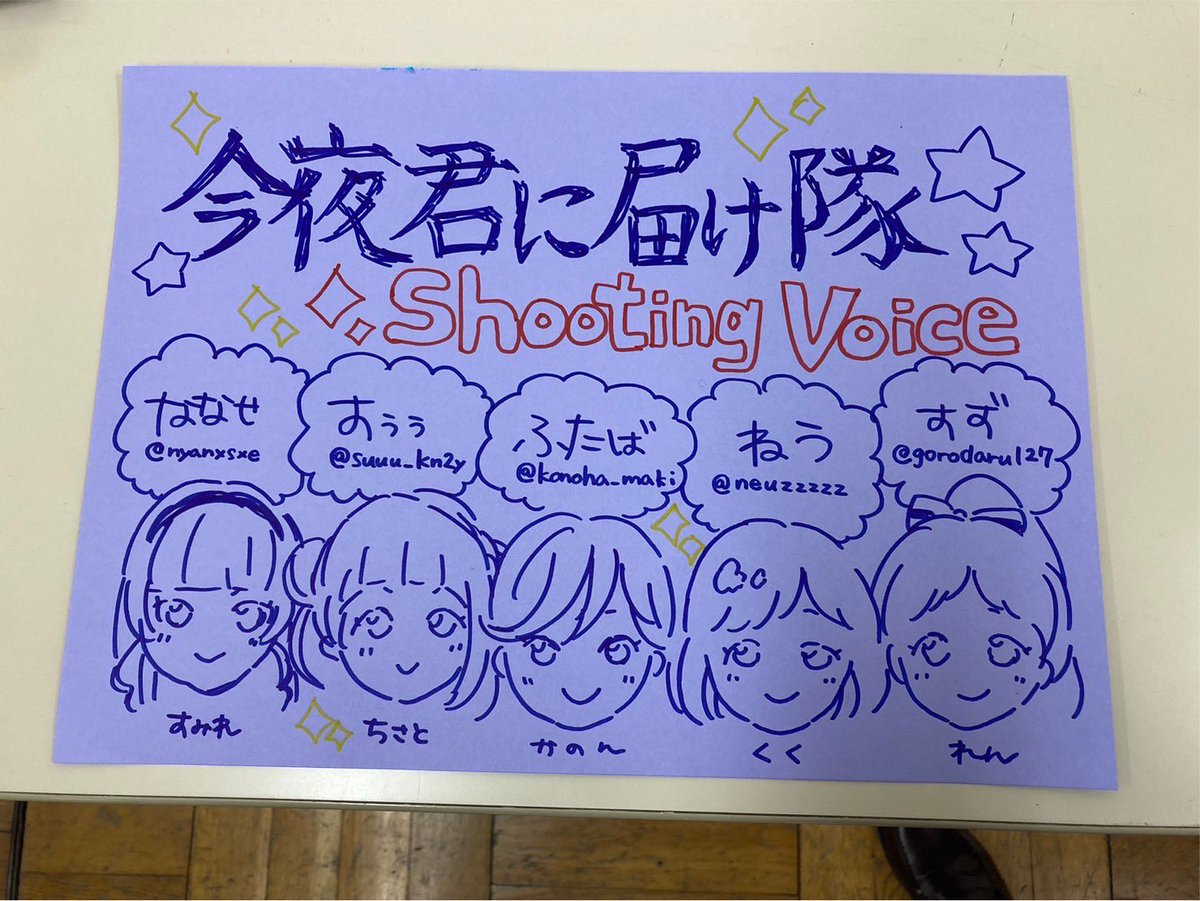 今夜君に届け隊
Shooting Voice
ななせ
@nyanxsxe
すぅぅ
@suuu_kn2y
ふたば
@konoha_maki
ねう
@neuzzzzz
すず
@gorodaru127
すみれ
ちさと
かのん
くく
れん